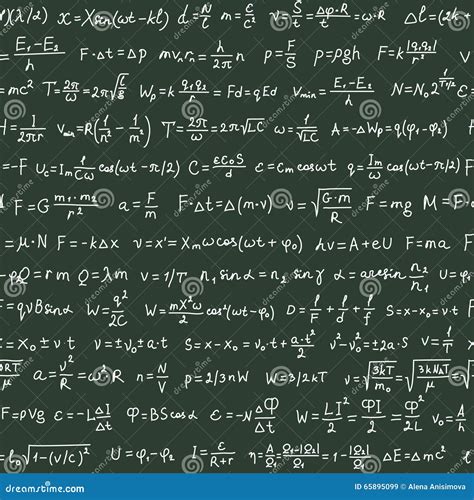 (λ/2) x=X₀sin(ωt-kl) d=N/l m=ε/c² v=S/t=Δφ·R/t=ω·R Δl=(2k
=E₁-E₂/h F·Δt=Δp mvₙrₙ=h/2π n p=F/S p=ρgh F=k|q₁q₂|/r²
=mc² T=2π/ω=2π√l/g Wₚ=k q₁q₂/r=Fd=qEd νmin=E₁-E₂/h N=N₀2
H=I/2πr ν=R(1/n²-1/m²) T=2π/ω=2π√LC ω=1/√LC A=-ΔWₚ=q(φ₁-φ₂)
=-F U_C=Iₘ1/Cω cos(ωt-π/2) C=εε₀S/d e=εₘcosωt q=Iₘ/ω cos(ωt-π/2) F
F=G m₁·m₂/r² a=F/m F·Δt=Δ(m·v) v=√G·M/R F=mg M=F·
=μ·N F=-kΔx v=x'=Xₘωcos(ωt+φ₀) hν=A+eU F=ma F
-pQ=rm Q=λm ν=1/T n₁sinα=n₂sinγ α=arcsin n₂/n₁ U=φ
F=qvBsinα W=q²/2C W=mX²ω/2 cos²(ωt-φ₀) D=1/F=1/d+1/f S=x-x₀=v·t
=x₀±v·t v=v₀±a·t S=x-x₀=v₀·t+a·t²/2 v²-v₀²=±2a·S ν=1/T
a=v²/R=ω²R n=N/V p=2/3nW W=3/2kT v=√3kT/m₀=√3kNₐT/μ
F=ρVg ε=-L ΔI/Δt Φ=BScosα ε=-N ΔΦ/Δt W=LI²/2=ΦI/2=Φ²/2L v=A/
=l₀√1-(v/c)² U=φ₁-φ₂ I=ε/R+r η=A/Q₁=Q₁-|Q₂|/Q₁=1-|Q₂|/Q₁ ΔE=Δmc²
dreamstime
ID 65895099 © Alena Anisimova